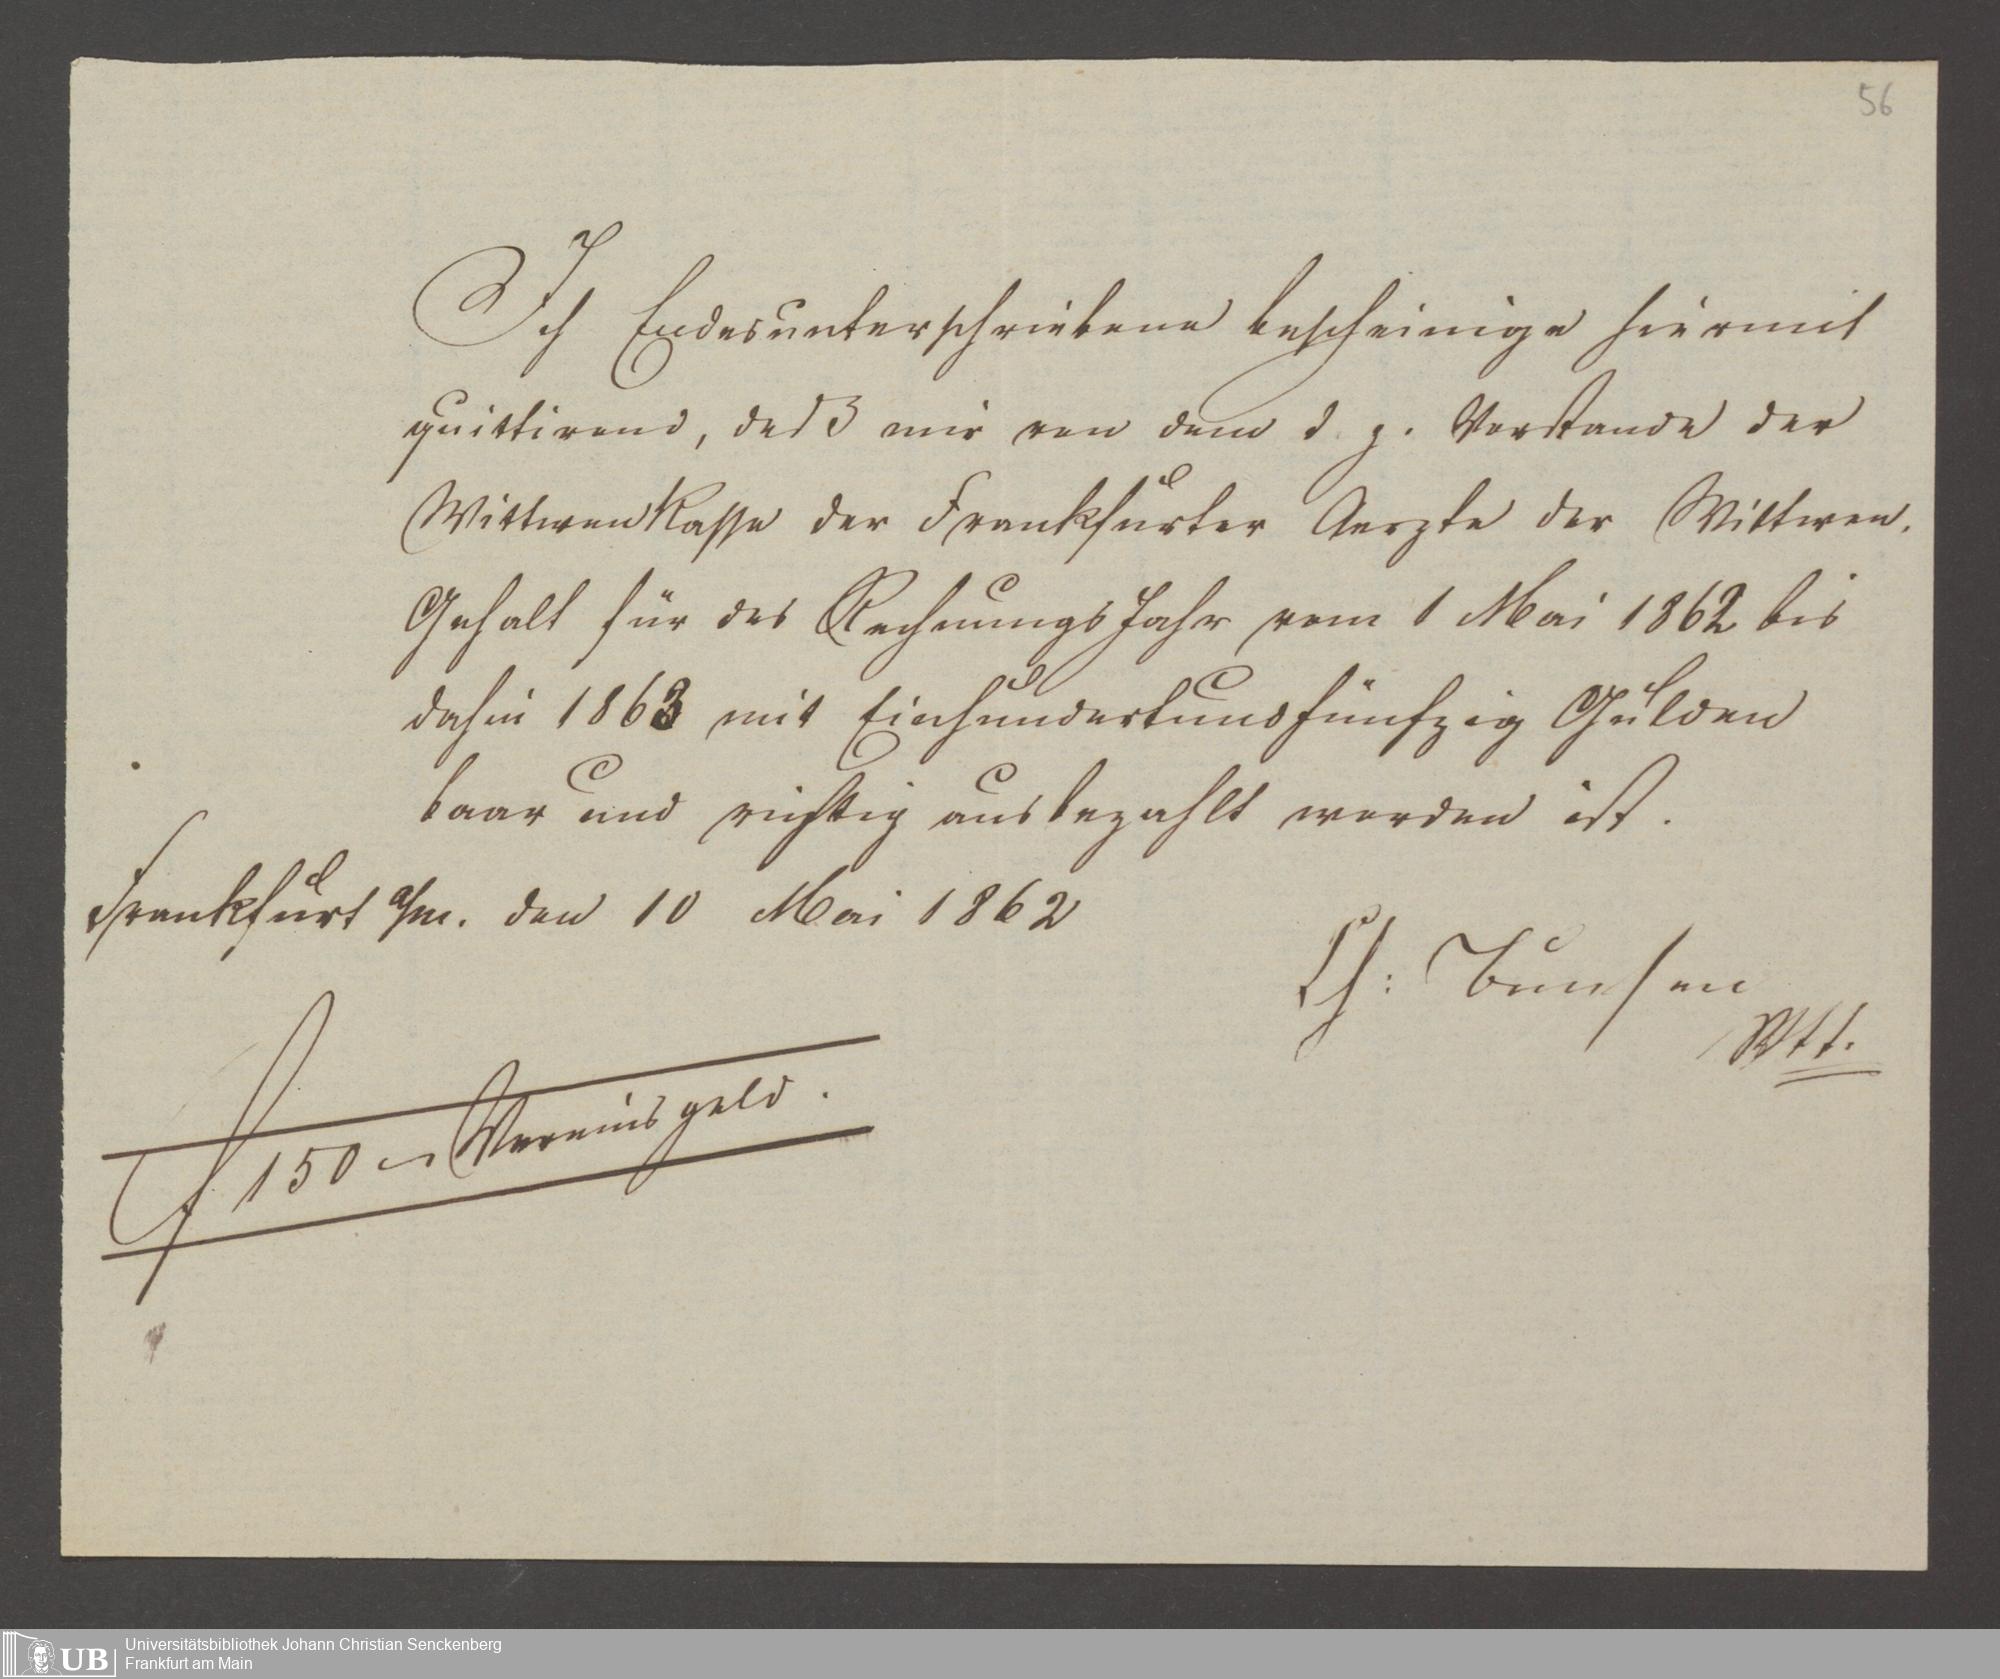 56
Ich Endesunterschriebene bescheinige hiermit
quittirend, daß mir von dem d. z. Vorstande der
Wittwenkasse der Frankfurter Aerzte der Wittwen-
Gehalt für das RechnungsJahr vom 1 Mai 1862 bis
dahin 1863 mit Einhundertundfünfzig Gulden
baar und richtig ausbezahlt worden ist.
Frankfurt a/m. den 10 Mai 1862
Ch: Bunsen
Wtt.
f 150 Vereinsgeld.
UB Universitätsbibliothek Johann Christian Senckenberg
Frankfurt am Main